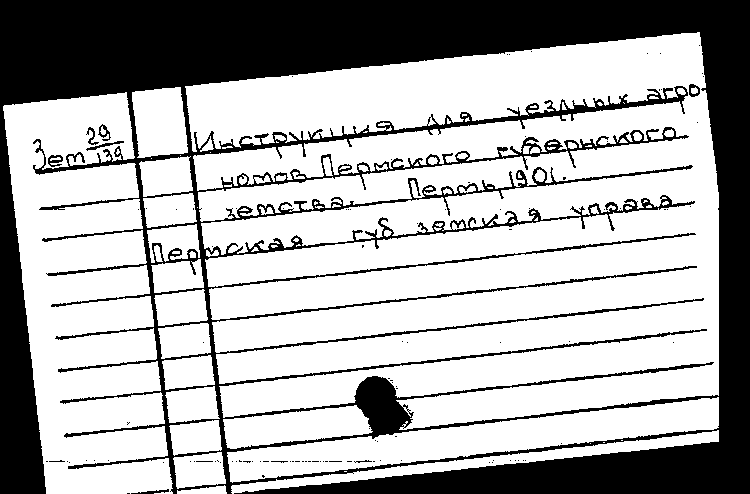 Зет 29/139
Инструкция для уездных агро-
номов Пермского губернского
земства. Пермь, 1901.
Пермская губ. земская управа